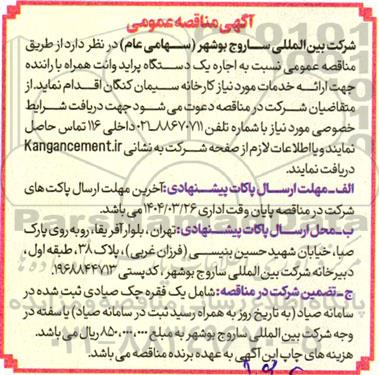 آگهی مناقصه عمومی
شرکت بین المللی ساروج بوشهر (سهامی عام) در نظر دارد از طریق
مناقصه عمومی نسبت به اجاره یک دستگاه پراید وانت همراه با راننده
جهت ارائه خدمات مورد نیاز کارخانه سیمان کنگان اقدام نماید. از
متقاضیان شرکت در مناقصه دعوت می شود جهت دریافت شرایط
خصوصی مورد نیاز با شماره تلفن ۸۸۶۷۰۷۱۱-۰۲۱ داخلی ۱۱۶ تماس حاصل
نمایند و یا اطلاعات لازم از صفحه شرکت به نشانی Kangancement.ir
دریافت نمایند.
الف-مهلت ارسال پاکات پیشنهادی: آخرین مهلت ارسال پاکت های
شرکت در مناقصه پایان وقت اداری ۱۴۰۴/۰۳/۲۶ می باشد.
ب-محل ارسال پاکات پیشنهادی: تهران، بلوار آفریقا، رو به روی پارک
صبا، خیابان شهید حسین بنیسی (فرزان غربی)، پلاک ۳۸، طبقه اول،
دبیرخانه شرکت بین المللی ساروج بوشهر، کدپستی ۱۹۶۸۸۴۴۷۱۳.
ج-تضمین شرکت در مناقصه: شامل یک فقره چک صیادی ثبت شده در
سامانه صیاد (به تاریخ روز به همراه رسید ثبت در سامانه صیاد) یا سفته در
وجه شرکت بین المللی ساروج بوشهر به مبلغ ۸۵۰،۰۰۰،۰۰۰ ریال می باشد.
هزینه های چاپ این آگهی به عهده برنده مناقصه می باشد.